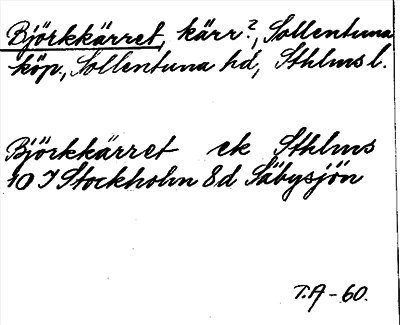 Björkkärret, kärr?, Sollentuna
köp., Sollentuna hd, Sthlms l.
Björkkärret ek Sthlms
10 I Stockholm 8d Säbysjön
T.A-60.